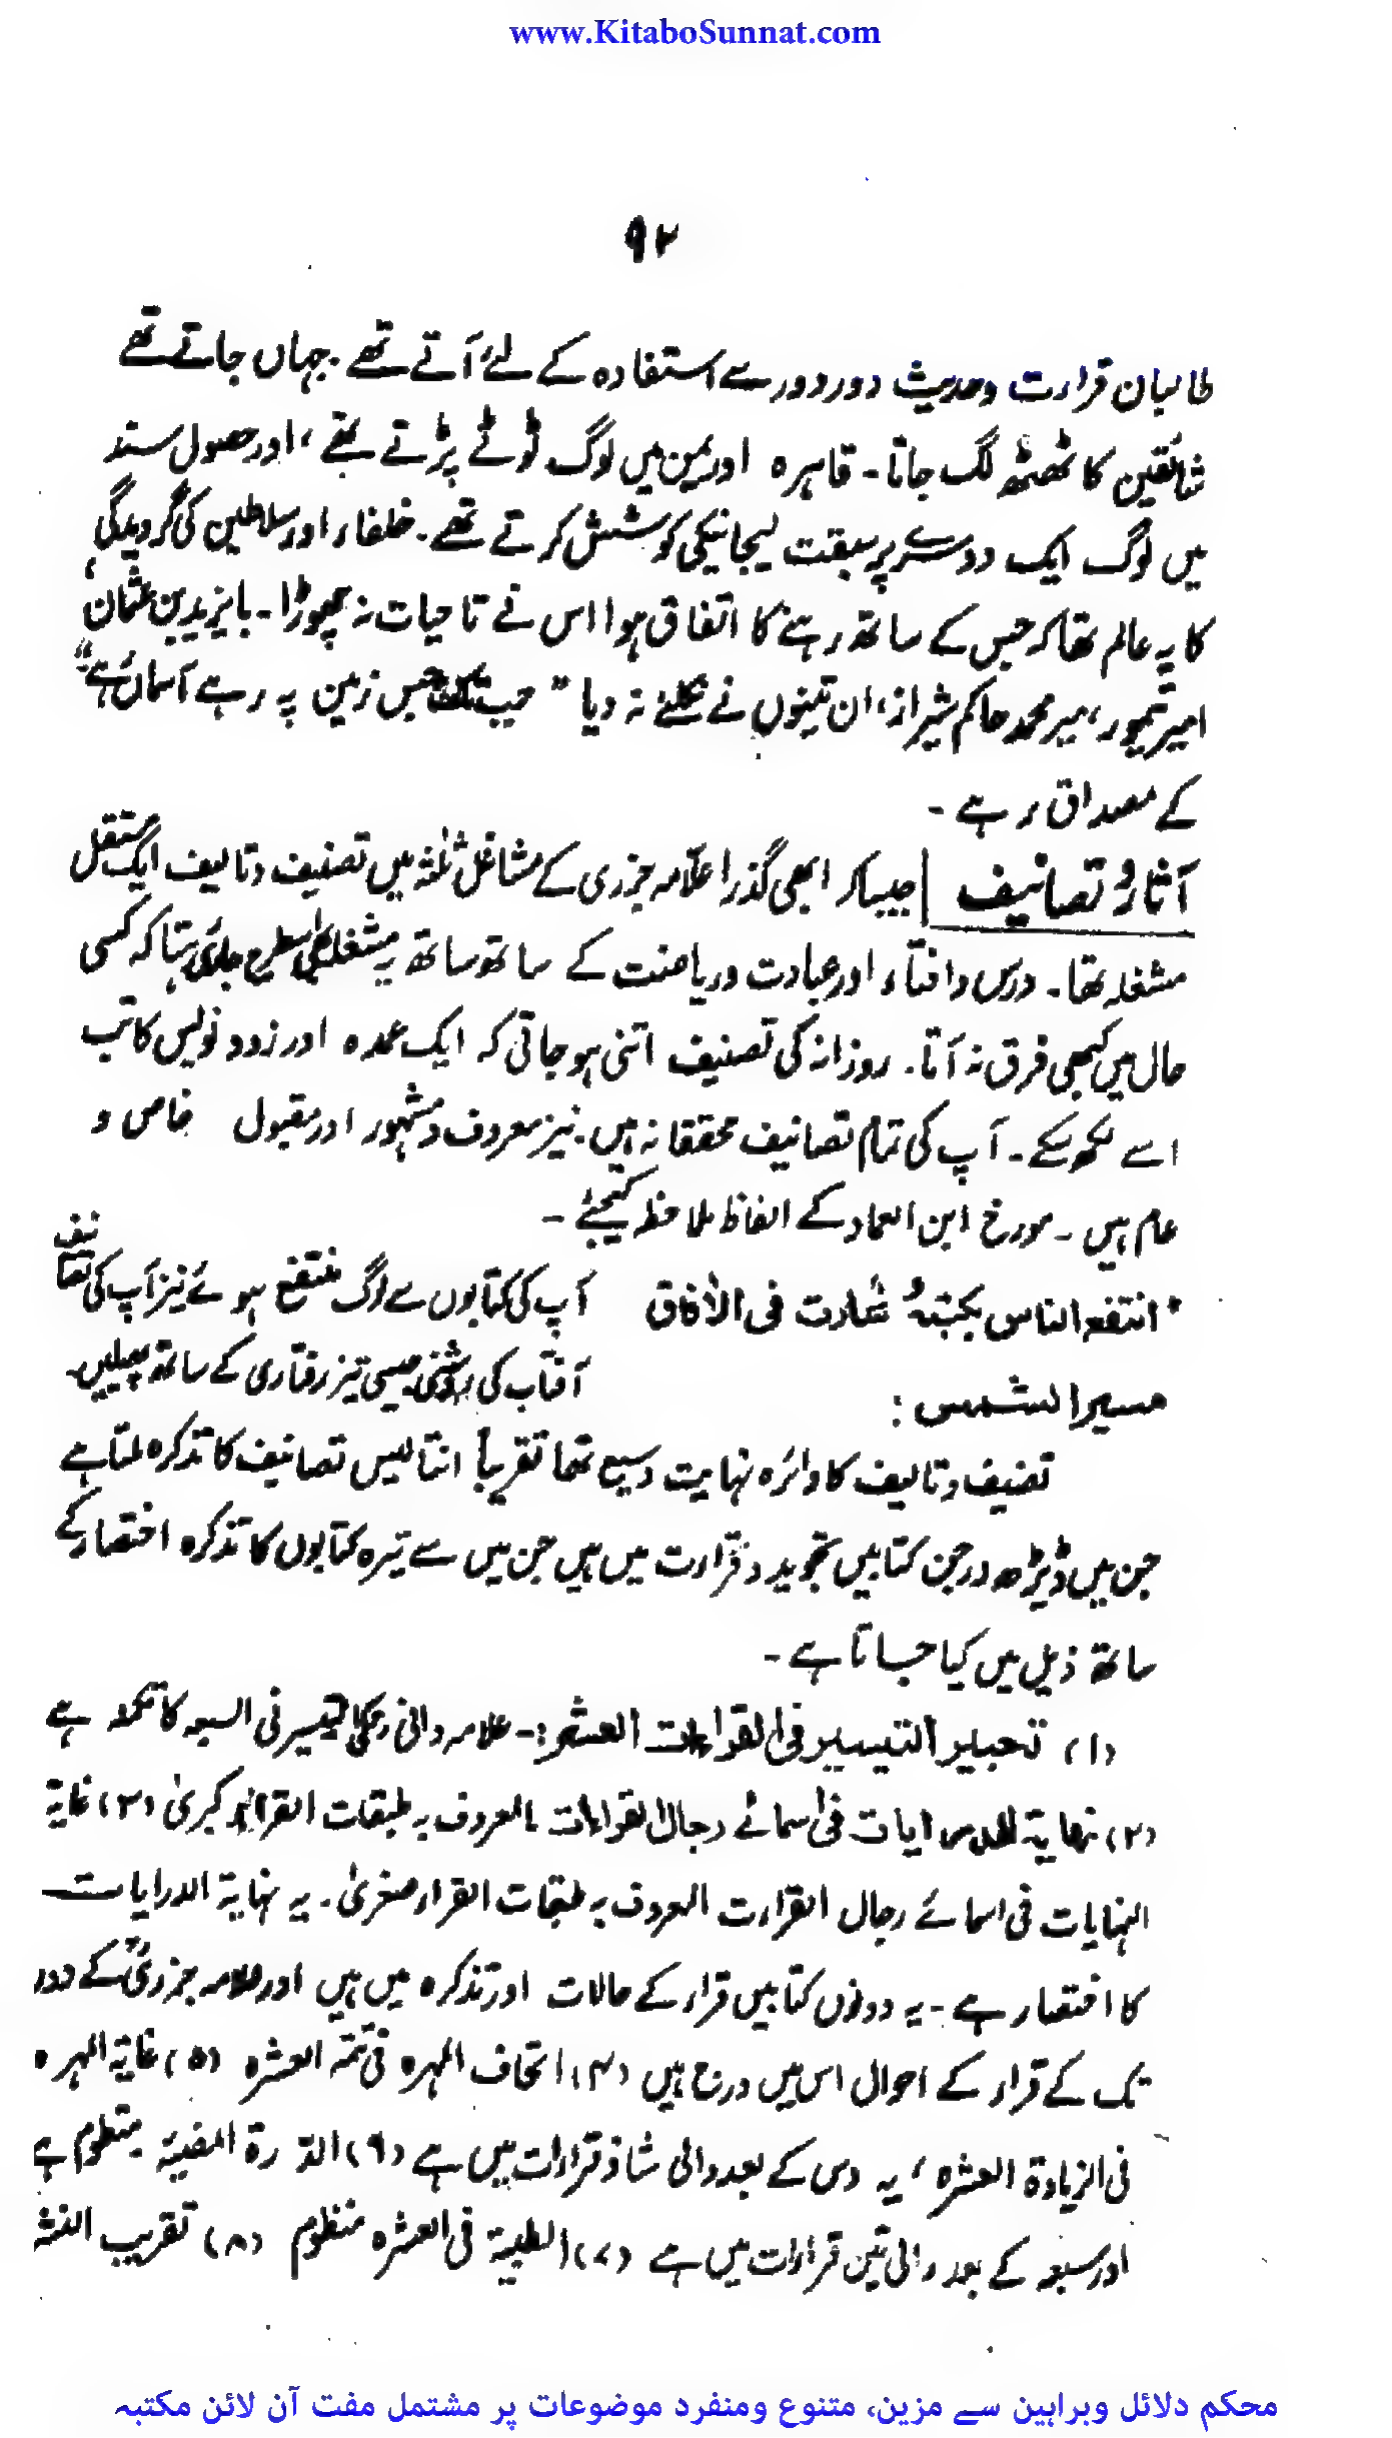 www.KitaboSunnat.com
۹۲
طالبان قراءت وحدیث دور دور سے استفادہ کے لئے آتے تھے۔ جہاں جاتے تھے
شائقین کا ٹھٹھ لگ جاتا۔ قاہرہ اور یمن میں لوگ ٹوٹے پڑتے تھے، اور حصول سند
میں لوگ ایک دوسرے پر سبقت لیجانیکی کوشش کرتے تھے۔ خلفاء اور سلاطین کی گرویدگی
کا یہ عالم تھا کہ جس کے ساتھ رہنے کا اتفاق ہوا اس نے تا حیات نہ چھوڑا۔ بایزید بن عثمان،
امیر تیمور، میر محمد حاکم شیراز، ان تینوں نے نکلنے نہ دیا " جس زمین پہ رہے آسماں رہے"
کے مصداق رہے۔
آثار و تصانیف | جیسا کہ ابھی گذرا علّامہ جزری کے مشاغل ثلٰثہ میں تصنیف و تالیف ایک مستقل
مشغلہ تھا۔ درس و افتاء اور عبادت و ریاضت کے ساتھ ساتھ یہ مشغلہ اسطرح جاری رہتا کہ کسی
حال میں کبھی فرق نہ آتا۔ روزانہ کی تصنیف اتنی ہو جاتی کہ ایک عمدہ اور زود نویس کاتب
اسے لکھ سکے۔ آپ کی تمام تصانیف محققانہ ہیں۔ نیز معروف و مشہور اور مقبول خاص و
عام ہیں۔ مورخ ابن العماد کے الفاظ ملاحظہ کیجئے۔
"انتفع الناس بکتبہٖ وسارت فی الاٰفاق
مسیر الشمس:
آپ کی کتابوں سے لوگ منتفع ہوئے نیز آپ کی تصانیف
آفتاب کی روشنی جیسی تیز رفتاری کے ساتھ پھیلیں۔
تصنیف و تالیف کا دائرہ نہایت وسیع تھا تقریباً انتالیس تصانیف کا تذکرہ ملتا ہے
جن میں ڈیڑھ درجن کتابیں تجوید و قراءت میں ہیں جن میں سے تیرہ کتابوں کا تذکرہ اختصار کے
ساتھ ذیل میں کیا جاتا ہے۔
(۱) تحبیر التیسیر فی القراءات العشر:۔ علامہ دانی کی تیسیر فی السبعہ کا تکملہ ہے
(۲) نہایۃ الدرایات فی اسمائے رجال القراءات المعروف بہ طبقات القراء کبریٰ (۳) غایۃ
النہایات فی اسمائے رجال القراءت المعروف بہ طبقات القراء صغریٰ۔ یہ نہایۃ الدرایات
کا اختصار ہے۔ یہ دونوں کتابیں قراء کے حالات اور تذکرہ میں ہیں اور علامہ جزریؒ کے دور
تک کے قراء کے احوال اس میں درج ہیں (۴) اتحاف المہرہ فی تتمۃ العشرہ (۵) غایۃ المہرہ
فی الزیادۃ العشرہ، یہ دس کے بعد والی شاذ قراءات میں ہے (۶) الدّرۃ المضیئۃ منظوم ہے
اور سبعہ کے بعد والی تین قراءات میں ہے (۷) الطیبۃ فی العشرہ منظوم (۸) تقریب النشر
محکم دلائل وبراہین سے مزین، متنوع ومنفرد موضوعات پر مشتمل مفت آن لائن مکتبہ